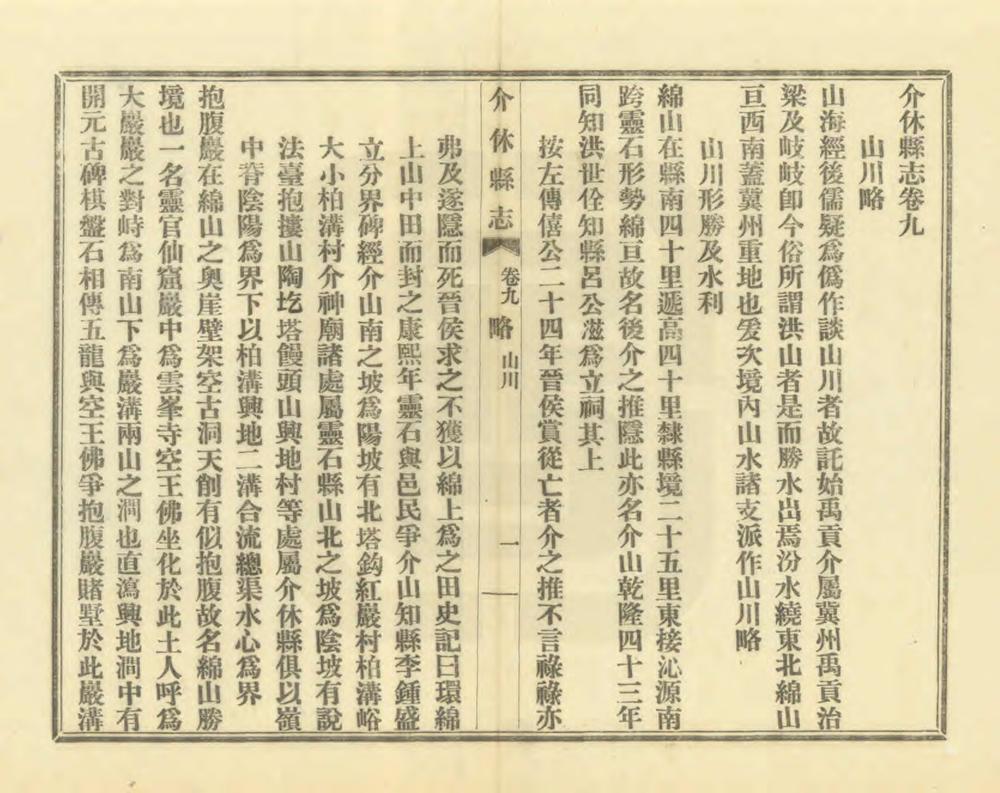 介休縣志卷九
山川略
山海經後儒疑爲僞作談山川者故託始禹貢介屬冀州禹貢治
梁及岐岐卽今俗所謂洪山者是而勝水出焉汾水繞東北綿山
亘西南蓋冀州重地也爰次境內山水諸支派作山川略
山川形勝及水利
綿山在縣南四十里遞高四十里隸縣境二十五里東接沁源南
跨靈石形勢綿亘故名後介之推隱此亦名介山乾隆四十三年
同知洪世佺知縣呂公滋爲立祠其上
按左傳僖公二十四年晉侯賞從亡者介之推不言祿祿亦
介休縣志 卷九 略 山川 一
弗及遂隱而死晉侯求之不獲以綿上爲之田史記曰環綿
上山中田而封之康熙年靈石與邑民爭介山知縣李鍾盛
立分界碑經介山南之坡爲陽坡有北塔鈎紅巖村柏溝峪
大小柏溝村介神廟諸處屬靈石縣山北之坡爲陰坡有說
法臺抱摟山陶圪塔饅頭山興地村等處屬介休縣俱以嶺
中脊陰陽爲界下以柏溝興地二溝合流總渠水心爲界
抱腹巖在綿山之奧崖壁架空古洞天創有似抱腹故名綿山勝
境也一名靈官仙窟巖中爲雲峯寺空王佛坐化於此土人呼爲
大巖巖之對峙爲南山下爲巖溝兩山之澗也直瀉興地澗中有
開元古碑棋盤石相傳五龍與空王佛爭抱腹巖賭墅於此巖溝